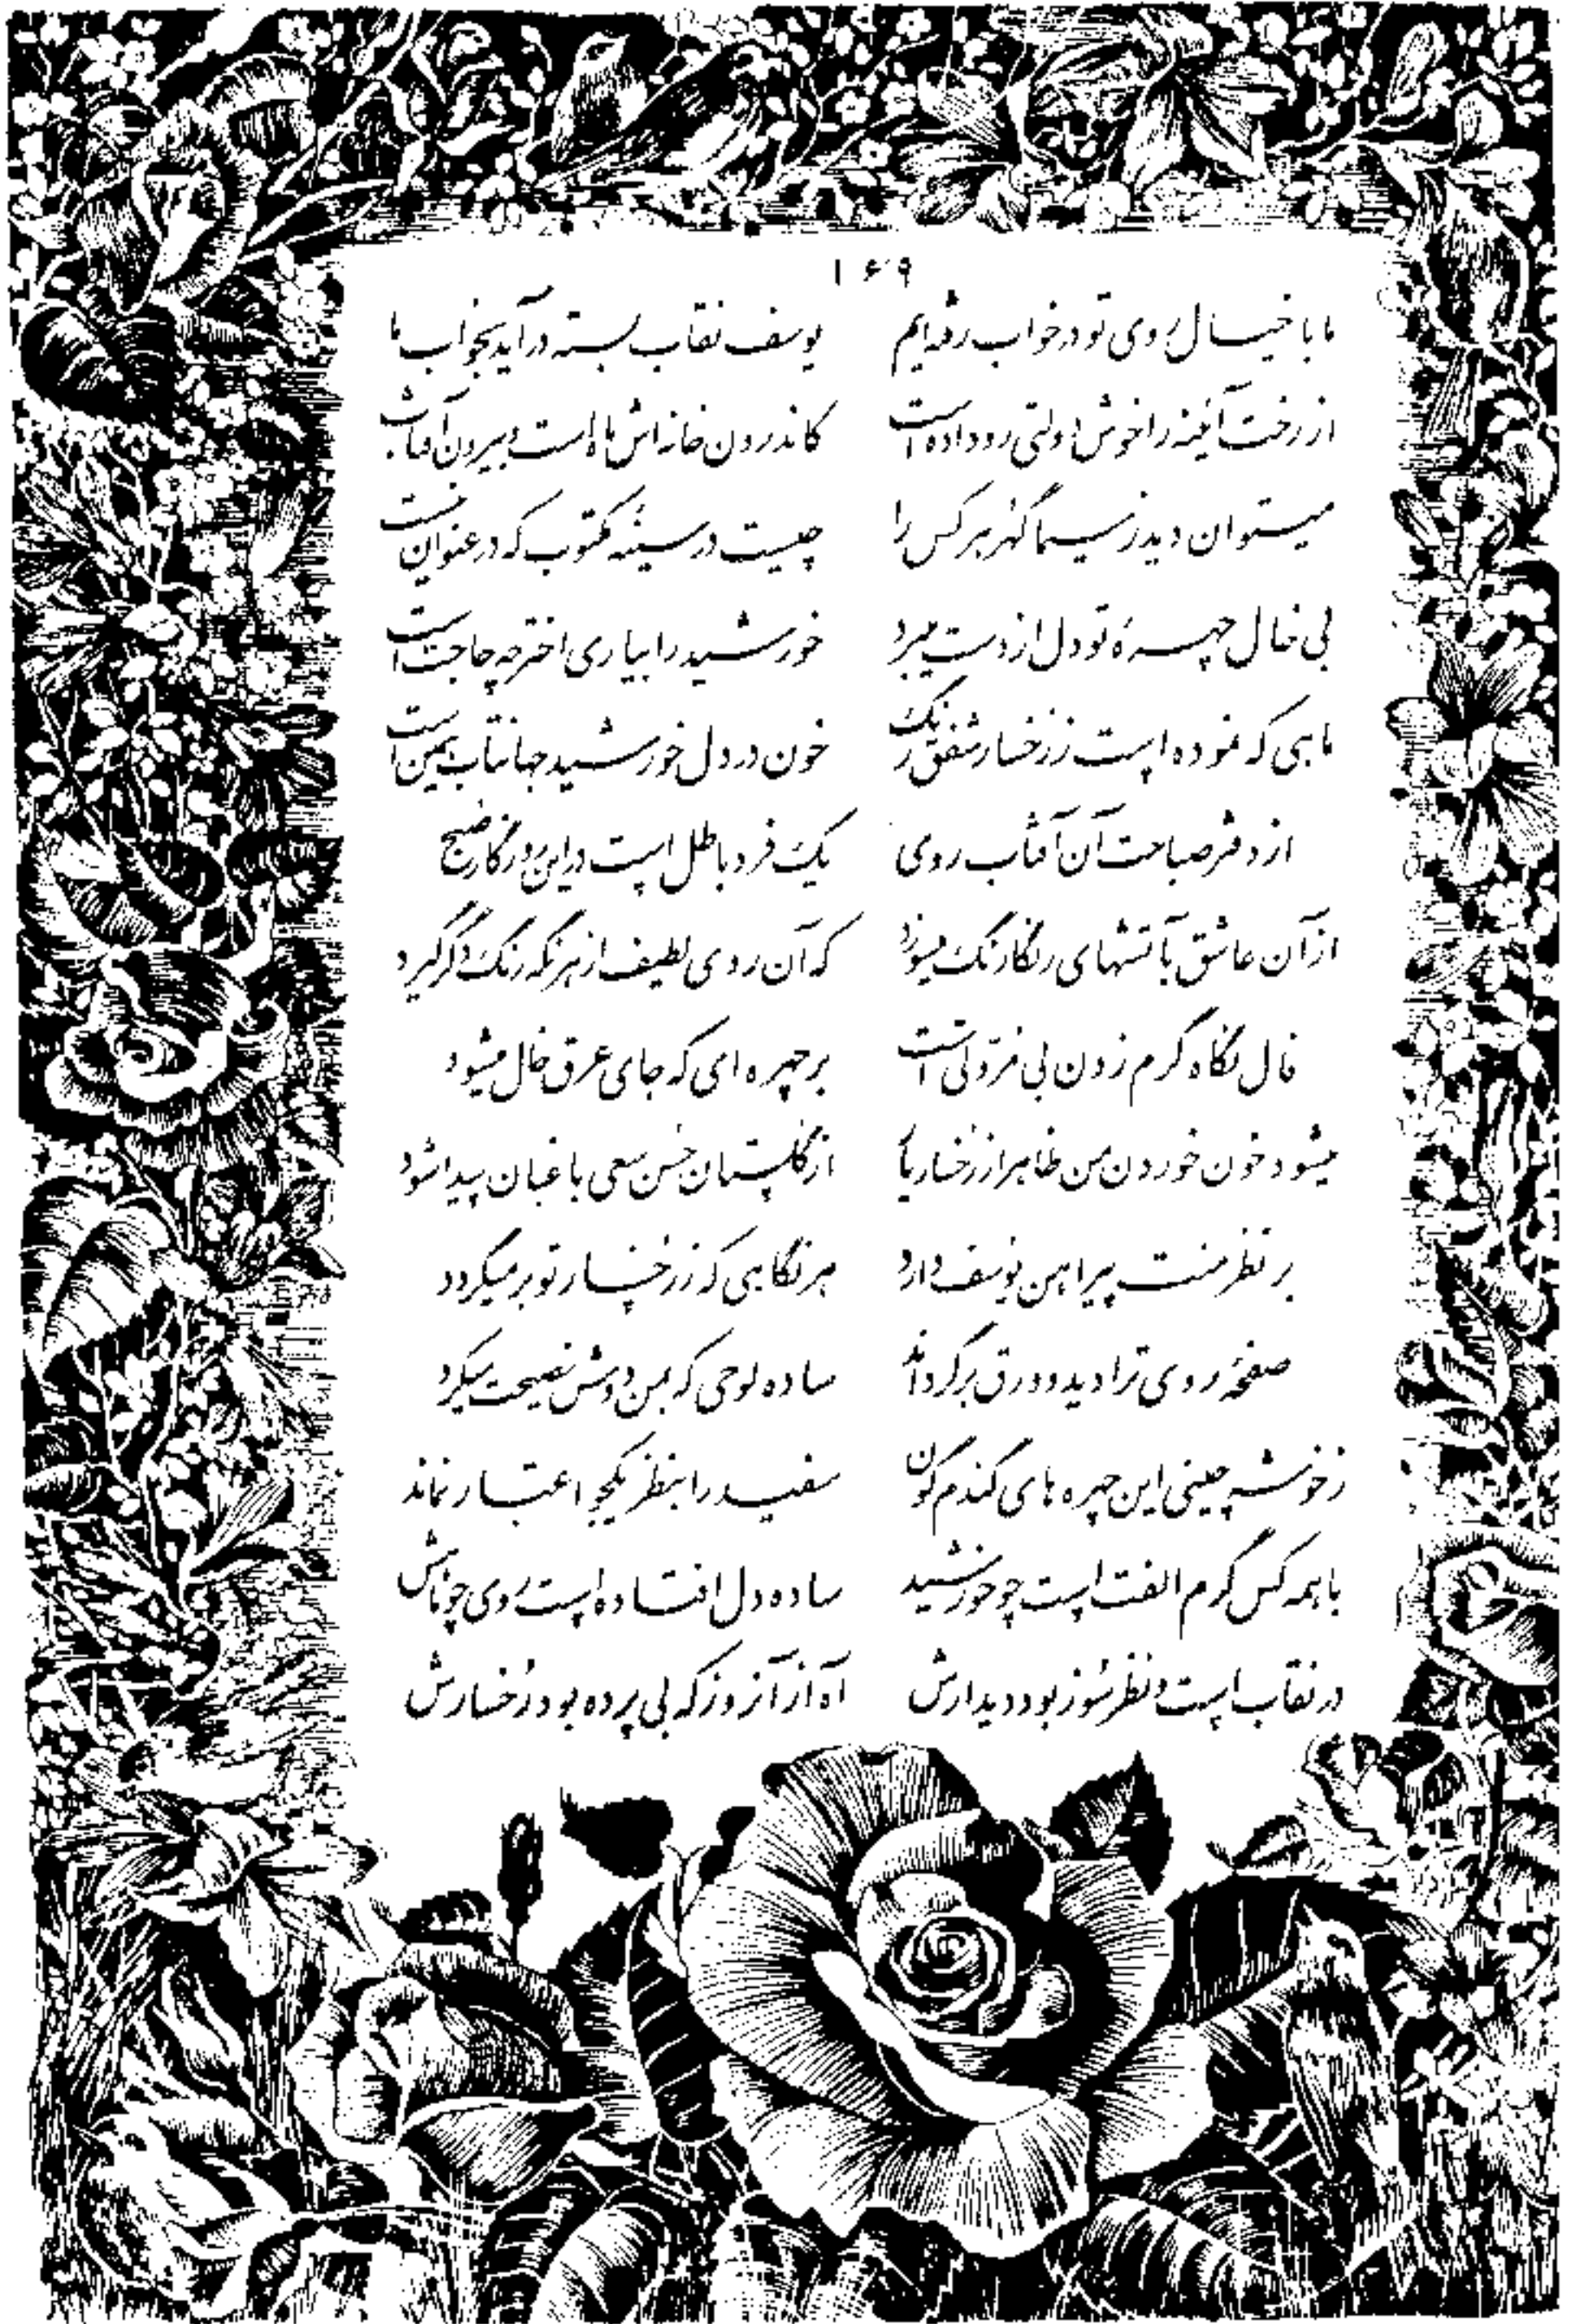 ۱۶۹
ما با خیال روی تو در خواب رفته‌ایم یوسف نقاب بسته در آید بخواب ما
از رخت آئینه را خوش دولتی رو داده است کاندرون خانه‌اش ماه است و بیرون آفتاب
میتوان دید ز سیما گهر هر کس را چیست در سینهٔ مکتوب که در عنوان نیست
بی خال چهرهٔ تو دل از دست میبرد خورشید را بیاری اختر چه حاجت است
ماهی که نموده است ز رخسار شفق رنگ خون در دل خورشید جهانتاب همین است
از دفتر صباحت آن آفتاب روی یک فرد باطل است در این روزگار صبح
از آن عاشق بآتشهای رنگارنگ میسوزد که آن روی لطیف از هر نگه رنگ دگر گیرد
فال نگاه گرم زدن بی مروتی است بر چهره‌ای که جای عرق خال میشود
میشود خون خوردن من ظاهر از رخسار یار از گلستان حسن سعی باغبان پیدا شود
بر نظر منت پیراهن یوسف دارد هر نگاهی که ز رخسار تو بر میگردد
صفحهٔ روی ترا دید و ورق برگرداند ساده لوحی که بمن دوش نصیحت میکرد
ز خوشه چینی این چهره های گندم گون سفید را بنظر یکجو اعتبار نماند
با همه کس گرم الفت است چو خورشید ساده دل افتاده است روی چو ماهش
در نقاب است و نظر سوز بود دیدارش آه از آنروز که بی پرده بود رخسارش